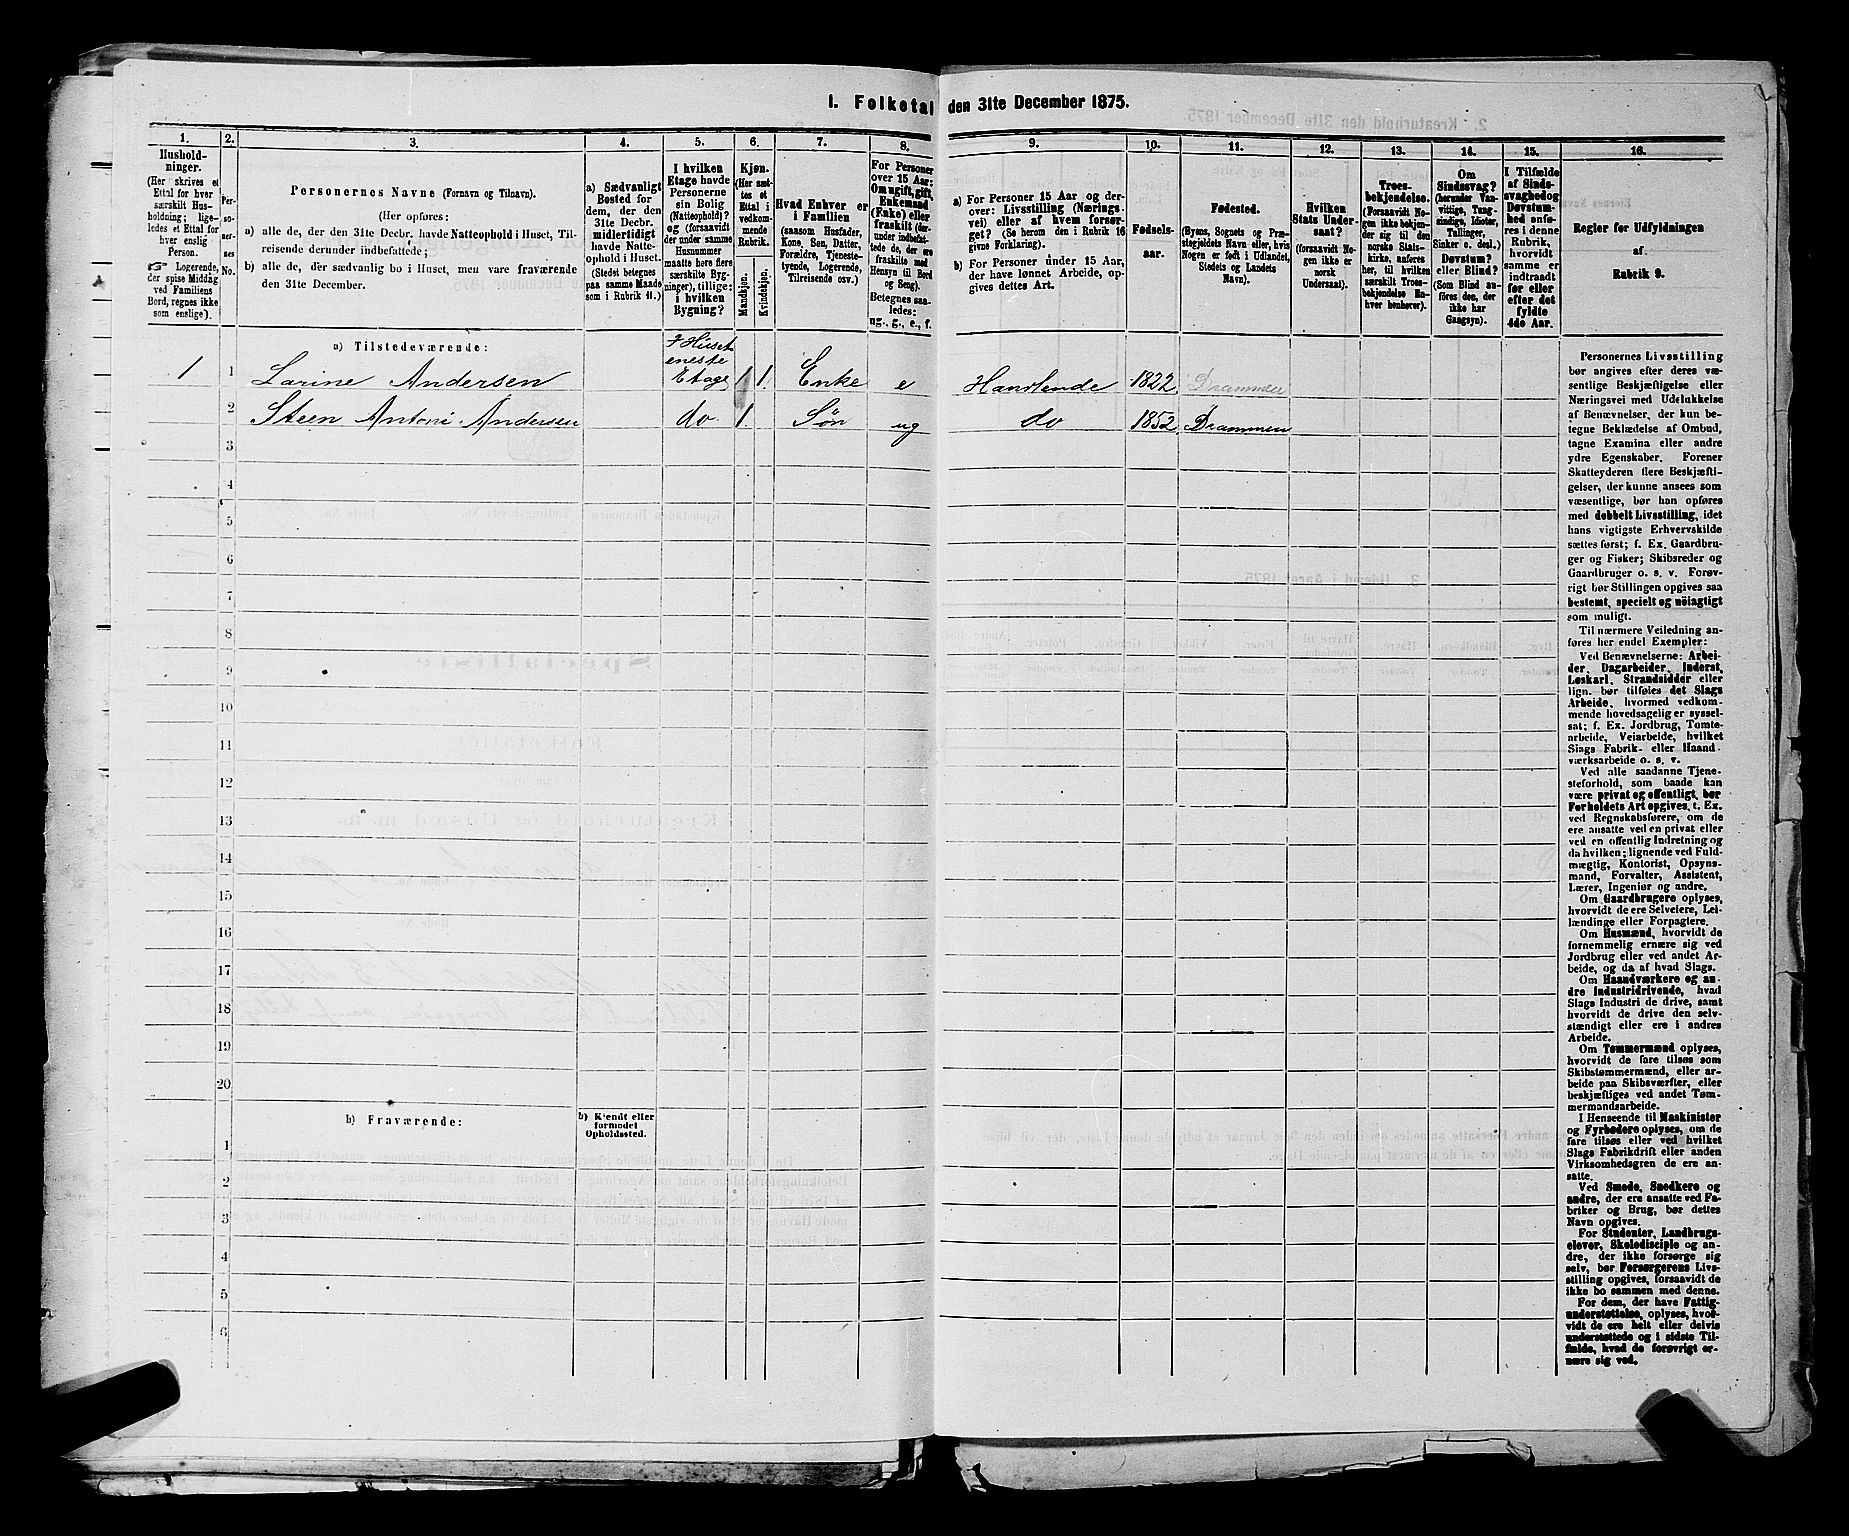 1. Folketal den 31te December 1875.
1. 2. 3. 4. 5. 6. 7. 8. 9. 10. 11. 12. 13. 14. 15. 16.
Hushold-
ninger.
(Her skrives et
Ettal for hver
særskilt Hus-
holdning; lige-
ledes et Ettal for
hver enslig
Person.
☞ Logerende,
der spise Middag
ved Familiens
Bord, regnes ikke
som enslige).
Per-
so-
ner-
nes
No.
Personernes Navne (Fornavn og Tilnavn).
(Her opføres:
a) alle de, der den 31te Decbr. havde Natteophold i Huset, Til-
reisende derunder indbefattede;
b) alle de, der sædvanlig bo i Huset, men vare fraværende
den 31te December.
a) Sædvanligt
Bosted for
dem, der den
31te Decbr.
midlertidigt
havde Natte-
ophold i Huset.
(Stedet betegnes
paa samme Maade
som i Rubrik 11.)
I hvilken
Etage havde
Personerne
sin Bolig
(Natteophold)?
og (forsaavidt
der under samme
Husnummer
maatte høre flere
særskilte Byg-
ninger), tillige:
i hvilken
Bygning?
Kjøn.
(Her sæt-
tes et
Ettal i
vedkom-
mende
Rubrik.
Mandkjøn.
Kvindekjøn.
Hvad Enhver er
i Familien
(saasom Husfader,
Kone, Søn, Datter,
Forældre, Tjeneste-
tyende, Logerende,
Tilreisende osv.)
For Personer
over 15 Aar:
Om ugift, gift,
Enkemand
(Enke) eller
fraskilt (der-
under indbefat-
tede de, der ere
fraskilte med
Hensyn til Bord
og Seng).
Betegnes saa-
ledes:
ug., g., e., f.
a) For Personer 15 Aar og der-
over: Livsstilling (Nærings-
vei) eller af hvem forsør-
get? (Se herom den i Rubrik 16
givne Forklaring).
b) For Personer under 15 Aar,
der have lønnet Arbeide, op-
gives dettes Art.
Fødsels-
aar.
Fødested.
(Byens, Sognets og Præ-
stegjeldets Navn eller, hvis
Nogen er født i Udlandet,
Stedets og Landets
Navn).
Hvilken
Stats Under-
saat?
(forsaavidt No-
gen ikke er
norsk
Undersaat).
Troes-
bekjendelse.
(Forsaavidt No-
gen ikke bekjen-
der sig til den
norske Stats-
kirke, anføres
her, til hvilken
særskilt Troes-
bekjendelse En-
hver henhører).
Om
Sindssvag?
(herunder Van-
vittige, Tung-
sindige, Idioter,
Tullinger,
Sinker o. desl.)
Døvstum?
eller Blind?
(Som Blind an-
føres den, der
ikke har
Gangsyn).
I Tilfælde
af Sinds-
svaghed og
Døvstum-
hed anfø-
res i denne
Rubrik,
hvorvidt
samme er
indtraadt
før eller
efter det
fyldte
4de Aar.
Regler for Udfyldningen
af
Rubrik 9.
a) Tilstedeværende:
1 1 Larine Andersen I Huset eneste Etage 1 Enke e Handlende 1822 Drammen
2 Steen Antoni Andersen do 1 Søn ug do 1852 Drammen
3
4
5
6
7
8
9
10
11
12
13
14
15
16
17
18
19
20
b) Fraværende:
b) Kjendt eller
formodet
Opholdssted.
1
2
3
4
5
6
Personernes Livsstilling
bør angives efter deres væ-
sentlige Beskjæftigelse eller
Næringsvei med Udelukkelse
af Benævnelser, der kun be-
tegne Beklædelse af Ombud,
tagne Examina eller andre
ydre Egenskaber. Forener
Skatteyderen flere Beskjæfti-
gelser, der kunne ansees som
væsentlige, bør han opføres
med dobbelt Livsstilling, idet
hans vigtigste Erhvervskilde
sættes først; f. Ex. Gaardbru-
ger og Fisker; Skibsreder og
Gaardbruger o. s. v. Forøv-
rigt bør Stillingen opgives saa
bestemt, specielt og nöiagtigt
som muligt.
Til nærmere Veiledning an-
føres her endel Exempler:
Ved Benævnelserne: Arbei-
der, Dagarbeider, Inderst,
Løskarl, Strandsidder eller
lign. bør tilføies det Slags
Arbeide, hvormed vedkom-
mende hovedsagelig er syssel-
sat; f. Ex. Jordbrug, Tomte-
arbeide, Veiarbeide, hvilket
Slags Fabrik- eller Haand-
værksarbeide o. s. v.
Ved alle saadanne Tjene-
steforhold, som baade kan
være privat og offentligt, bør
Forholdets Art opgives, t. Ex.
ved Regnskabsførere, om de
ere ansatte ved en privat eller
ved en offentlig Indretning og
da hvilken; lignende ved Fuld-
mægtig, Kontorist, Opsyns-
mand, Forvalter, Assistent,
Lærer, Ingeniør og andre.
Om Gaardbrugere oplyses,
hvorvidt de ere Selveiere, Lei-
lændinge eller Forpagtere.
Om Husmænd, hvorvidt de
fornemmelig ernære sig ved
Jordbrug eller ved andet Ar-
beide, og da af hvad Slags.
Om Haandværkere og an-
dre Industridrivende, hvad
Slags Industri de drive, samt
hvorvidt de drive den selv-
stændigt eller ere i andres
Arbeide.
Om Tømmermænd oplyses,
hvorvidt de fare tilsøs som
Skibstømmermænd, eller ar-
beide paa Skibsværfter, eller
beskjæftiges ved andet Tøm-
mermandsarbeide.
I Henseende til Maskinister
og Fyrbødere oplyses, om de
fare tilsøs eller ved hvilket
Slags Fabrikdrift eller anden
Virksomhedsgren de ere an-
satte.
Ved Smede, Snedkere og
andre, der ere ansatte ved Fa-
briker og Brug, bør dettes
Navn opgives.
For Studenter, Landbrugs-
elever, Skoledisciple og an-
dre, der ikke forsørge sig
selv, bør Forsørgerens Livs-
stilling opgives, forsaavidt de
ikke bo sammen med denne.
For dem, der have Fattig-
understøttelse, oplyses, hvor-
vidt de ere helt eller delvis
understøttede og i sidste Til-
fælde, hvad de forøvrigt er-
nære sig ved.